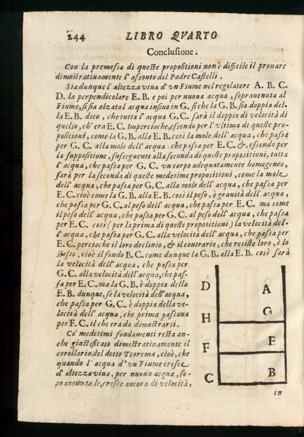 244 LIBRO QVARTO
Conclusione.
Con la premessa di queste propositioni non è difficile il prouare
dimostratiuamente l'assonto del Padre Castelli.
Sia dunque l'altezza viua d'vn Fiume nel regolatore A. B. C.
D. la perpendicolare E. B. e poi per nuoua acqua, soprauenuta al
Fiume, si sia alzato l'acqua insino in G. siche la G. B. sia doppia del-
la E. B. dico, che tutta l'acqua G. C. sarà il doppio di velocità di
quello, ch'era E. C. Imperoche, essendo per l'vltima di queste pro-
positioni, come la G. B. alla E. B. così la mole dell'acqua, che passa
per G. C. alla mole dell'acqua, che passa per E. C. &, essendo per
la suppositione, susseguente alla seconda di queste propositioni, tutta
l'acqua, che passa per G. C. vn corpo adequatamente homogeneo,
sarà per la seconda di queste medesime propositioni, come la mole
dell'acqua, che passa per G. C. alla mole dell'acqua, che passa per
E. C. cioè come la G. B. alla E. B. così il peso, è grauità dell'acqua,
che passa per G. C. al peso dell'acqua, che passa per E. C. ma come
il peso dell'acqua, che passa per G. C. al peso dell'acqua, che passa
per E. C. così (per la prima di queste propositioni) la velocità del-
l'acqua, che passa per G. C. alla velocità dell'acqua, che passa per
E. C. percioche il loro declinio, & il contrario, che resiste loro, è lo
stesso, cioè il fondo B. C. come dunque la G. B. alla E. B. così sarà
la velocità dell'acqua, che passa per
G. C. alla velocità dell'acqua, che pas-
sa per E. C. ma la G. B. è doppia della
E. B. dunque, se la velocità dell'acqua,
che passa per G. C. è doppia della ve-
locità dell'acqua, che prima passaua
per E. C. il che era da dimostrarsi.
Co' medesimi fondamenti resta an-
che giustificato dimostratiuamente il
corollario del detto Teorema, cioè, che
quando l'acqua d'vn Fiume cresce
d'altezza viua, per nuoua acqua, so-
prauenutale, cresce ancora di velocità,
D A
H G
F E
C B
in